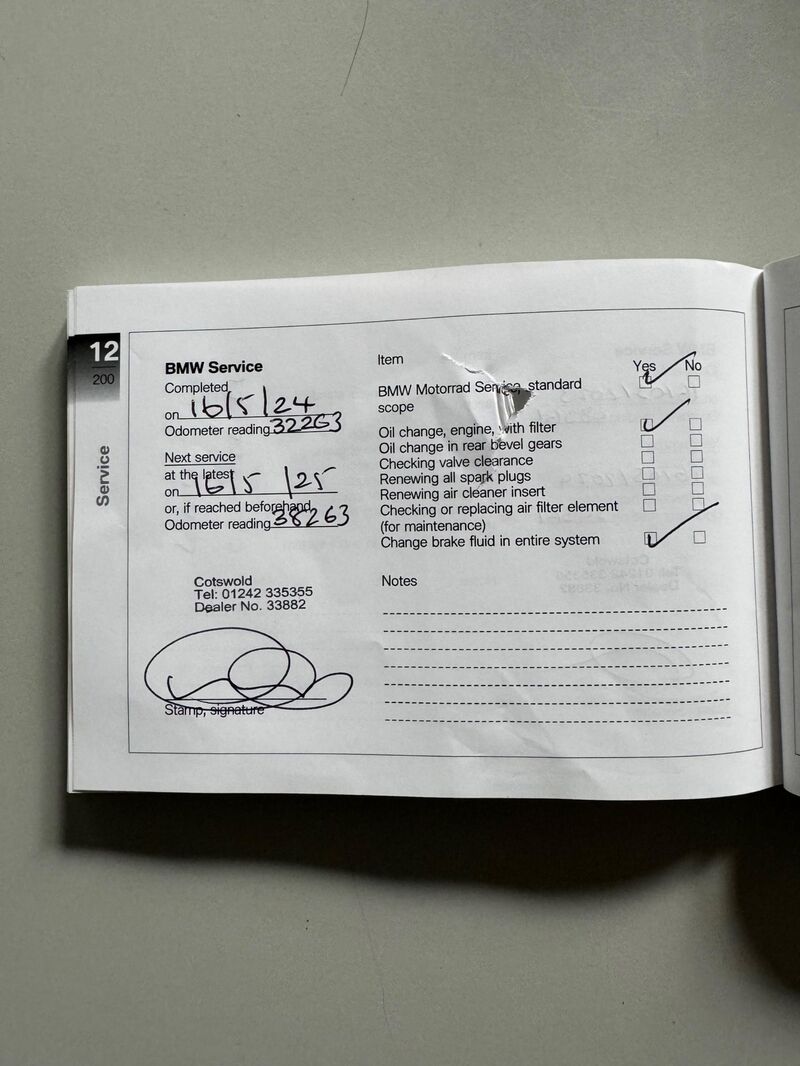 12
200
Service
BMW Service
Completed
on 16/5/24
Odometer reading 32263
Next service
at the latest
on 16/5/25
or, if reached beforehand,
Odometer reading 38263
Cotswold
Tel: 01242 335355
Dealer No. 33882
Stamp, signature
Item
Yes No
BMW Motorrad Service, standard
scope
Oil change, engine, with filter
Oil change in rear bevel gears
Checking valve clearance
Renewing all spark plugs
Renewing air cleaner insert
Checking or replacing air filter element
(for maintenance)
Change brake fluid in entire system
Notes